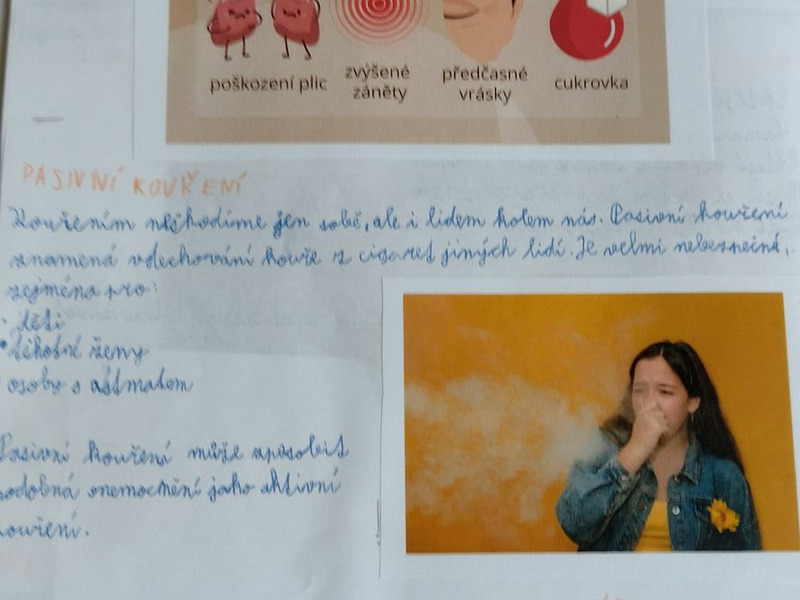 poškození plic
zvýšené
záněty
předčasné
vrásky
cukrovka
PASIVNÍ KOUŘENÍ
Kouřením neškodíme jen sobě, ale i lidem kolem nás. Pasivní kouření
znamená vdechování kouře z cigaret jiných lidí. Je velmi nebezpečné,
zejména pro:
• děti
• těhotné ženy
• osoby s astmatem
Pasivní kouření může způsobit
podobná onemocnění jako aktivní
kouření.